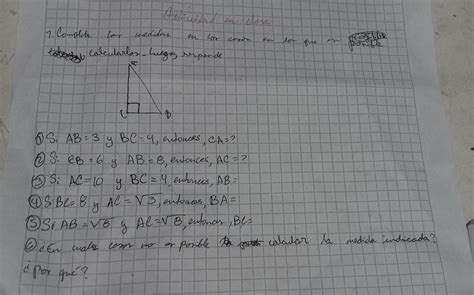 Actividad en clase
1. Completa las medidas en los casos en los que es posible
calcularlas. Luego, responde
A
C B
① Si AB = 3 y BC = 4, entonces, CA = ?
② Si CB = 6 y AB = 8, entonces, AC = ?
③ Si AC = 10 y BC = 4, entonces, AB =
④ Si BC = 8 y AC = √3, entonces, BA =
⑤ Si AB = √8 y AC = √8, entonces, BC =
⑥ ¿En cuales casos no es posible calcular la medida indicada?
¿Por qué?